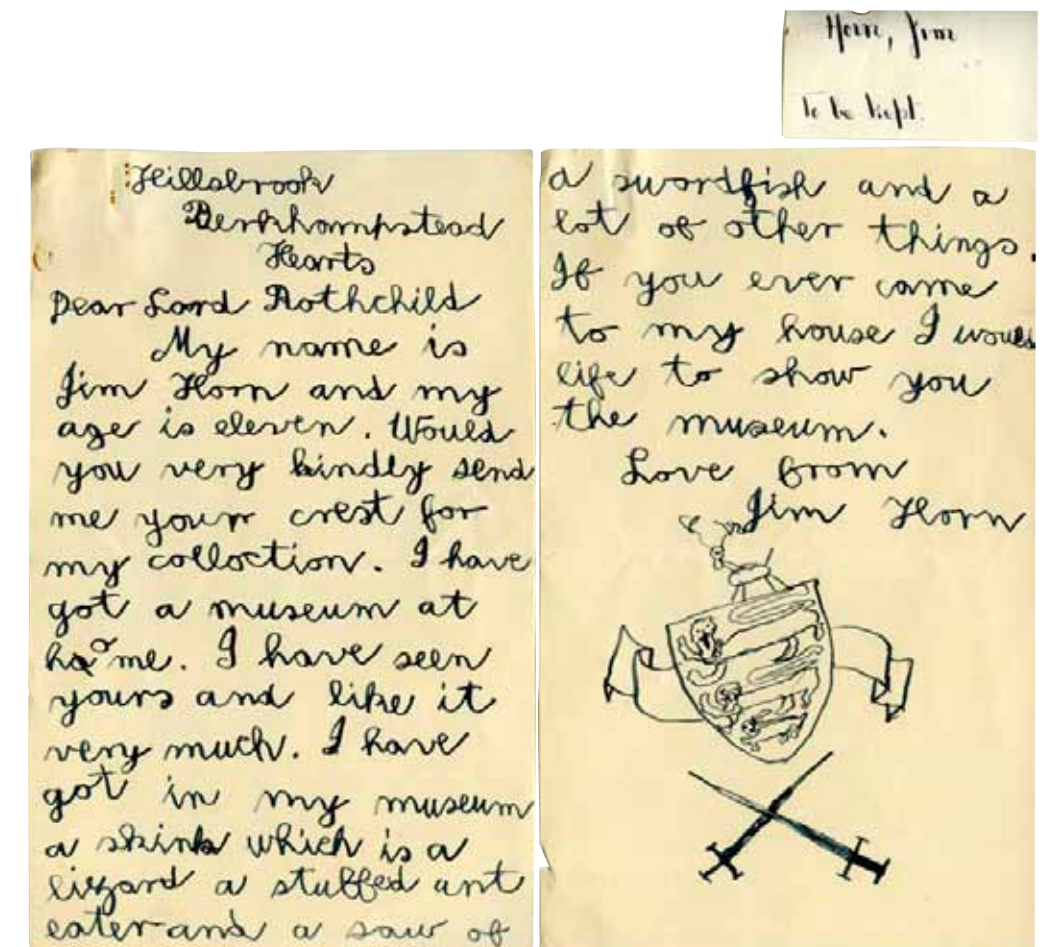 Horn, Jim
To be kept.
Hillsbrook
Berkhampstead
Hearts
Dear Lord Rothchild
My name is
Jim Horn and my
age is eleven. Would
you very kindly send
me your crest for
my colloction. I have
got a museum at
home. I have seen
yours and like it
very much. I have
got in my museum
a skink which is a
lizzard a stuffed ant
eater and a saw of
a swordfish and a
lot of other things.
If you ever came
to my house I would
life to show you
the museum.
Love from
Jim Horn